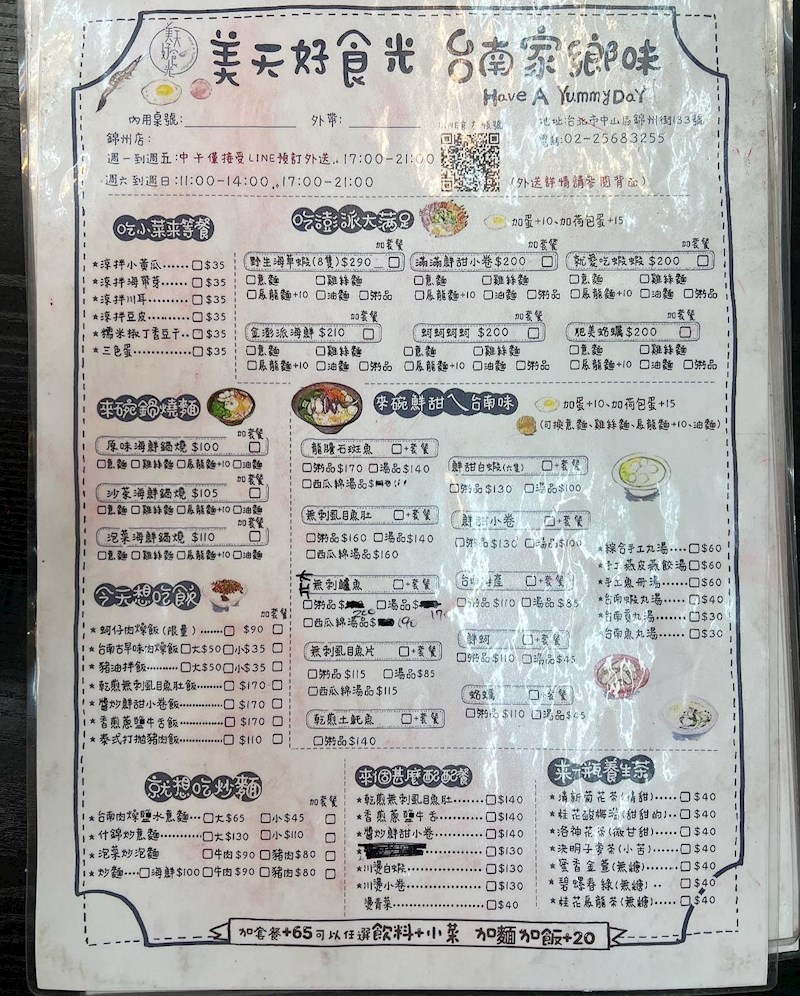 美天好食光
美天好食光 台南家鄉味
Have A Yummy DaY
內用桌號: 外帶: LINE官方帳號 地址:台北市中山區錦州街133號
錦州店: 電話:02-25683255
週一到週五:中午僅接受LINE預訂外送、17:00-21:00
週六到週日:11:00-14:00、17:00-21:00 (外送詳情請參閱背面)
吃小菜來等餐
*涼拌小黃瓜……□$35
*涼拌海帶芽……□$35
*涼拌川耳……□$35
*涼拌豆皮……□$35
*糯米椒丁香豆干…□$35
*三色蛋……□$35
吃澎派大滿足 加蛋+10、加荷包蛋+15
加套餐 加套餐 加套餐
野生海草蝦(8隻)$290 □ 滿滿鮮甜小卷$200 □ 就愛吃蝦蝦 $200 □
□意麵 □雞絲麵 □意麵 □雞絲麵 □意麵 □雞絲麵
□烏龍麵+10 □油麵 □粥品 □烏龍麵+10 □油麵 □粥品 □烏龍麵+10 □油麵 □粥品
加套餐 加套餐 加套餐
金澎派海鮮 $210 □ 蚵蚵蚵蚵 $200 □ 肥美蛤蠣$200 □
□意麵 □雞絲麵 □意麵 □雞絲麵 □意麵 □雞絲麵
□烏龍麵+10 □油麵 □粥品 □烏龍麵+10 □油麵 □粥品 □烏龍麵+10 □油麵 □粥品
來碗鍋燒麵
加套餐
原味海鮮鍋燒 $100 □
□意麵 □雞絲麵 □烏龍麵+10 □油麵
加套餐
沙茶海鮮鍋燒 $105 □
□意麵 □雞絲麵 □烏龍麵+10 □油麵
加套餐
泡菜海鮮鍋燒 $110 □
□意麵 □雞絲麵 □烏龍麵+10 □油麵
今天想吃飯
加套餐
*蚵仔肉燥飯(限量)……□ $90 □
*台南古早味肉燥飯□大$50□小$35 □
*豬油拌飯……□大$50□小$35 □
*乾煎無刺虱目魚肚飯……□ $170 □
*醬炒鮮甜小卷飯……□ $170 □
*香煎蔥鹽牛舌飯……□ $170 □
*泰式打拋豬肉飯……□ $110 □
來碗鮮甜ㄟ台南味 加蛋+10、加荷包蛋+15
(可換意麵、雞絲麵、烏龍麵+10、油麵)
龍膽石斑魚 □+套餐
□粥品$170 □湯品$140
□西瓜綿湯品$
無刺虱目魚肚 □+套餐
□粥品$160 □湯品$140
□西瓜綿湯品$160
無刺鱸魚 □+套餐
□粥品$ 200 □湯品$ 170
□西瓜綿湯品$ 190
無刺虱目魚片 □+套餐
□粥品$115 □湯品$85
□西瓜綿湯品$115
乾煎土魠魚 □+套餐
□粥品$140
鮮甜白蝦(六隻) □+套餐
□粥品$130 □湯品$100
鮮甜小卷 □+套餐
□粥品$130 □湯品$100
台南海產 □+套餐
□粥品$110 □湯品$85
鮮蚵 □+套餐
□粥品$110 □湯品$45
蛤蠣 □+套餐
□粥品$110 □湯品$45
*綜合手工丸湯…□$60
*手工燕皮燕餃湯□$60
*手工魚冊湯……□$60
*台南蝦丸湯……□$40
*台南貢丸湯……□$30
*台南魚丸湯……□$30
就想吃炒麵
加套餐
*台南肉燥鹽水意麵…□大$65 □小$45 □
*什錦炒意麵……□大$130 □小$110 □
*泡菜炒泡麵 □牛肉$90 □豬肉$80 □
*炒麵…□海鮮$100□牛肉$90 □豬肉$80 □
來個甚麼配配餐
*乾煎無刺虱目魚肚……□$140
*香煎蔥鹽牛舌……□$140
*醬炒鮮甜小卷……□$140
□$130
*川燙白蝦……□$130
*川燙小卷……□$130
燙青菜……□$40
來一瓶養生茶
*清新菊花茶(清甜)…□$40
*桂花酸梅湯(甜甜的)…□$40
*洛神花茶(微甘甜)…□$40
*決明子麥茶(小苦)…□$40
*蜜香金萱(無糖)…□$40
*碧螺春綠(無糖)…□$40
*桂花烏龍茶(無糖)…□$40
加套餐+65可以任選飲料+小菜 加麵加飯+20